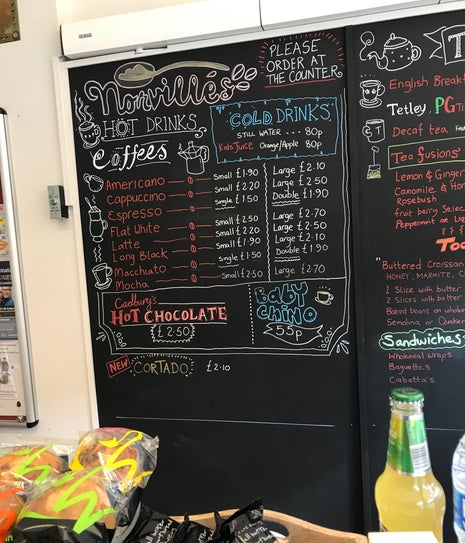 PLEASE
ORDER AT
THE COUNTER
Norvilles
HOT DRINKS
Coffees
COLD DRINKS
STILL WATER ... 80p
Kids Juice Orange/Apple 80p
Americano Small £1.90 Large £2.10
Cappuccino Small £2.20 Large £2.50
Espresso Single £1.50 Double £1.90
Flat White Small £2.50 Large £2.70
Latte Small £2.20 Large £2.50
Long Black Small £1.90 Large £2.10
Macchato Single £1.50 Double £1.90
Mocha Small £2.50 Large £2.70
Cadbury's
HOT CHOCOLATE
£2.50
BABY
CHINO
55p
NEW CORTADO £2.10
English Breakf
Tetley, PG Ti
Decaf tea
Tea fusions
Lemon & Ginger
Camomile & Hon
Rosebush
fruit berry Selec
Peppermint or
Toa
Buttered Croissan
HONEY, MARMITE, C
1 Slice with butter
2 Slices with butter
Baked beans on whole
Semolina or Quaker
Sandwiches
Wholemeal Wraps
Baguette's
Ciabatta's